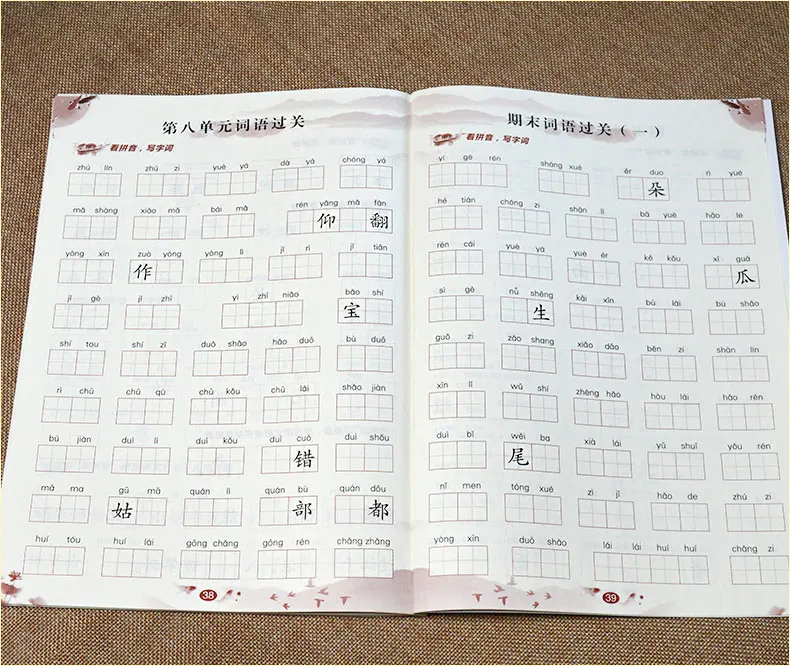 第八单元词语过关
看拼音，写字词
zhú lín zhú zi yuè yá dà yá chóng yá
mǎ shàng xiǎo mǎ bái mǎ rén yǎng mǎ fān
仰 翻
yòng xīn zuò yòng yòng lì jǐ rì jǐ tiān
作
jǐ gè jǐ zhī yì zhī niǎo bǎo shí
宝
shí tou shí zǐ duō shǎo hǎo duō bù duō
rì chū chū qù chū kǒu chū lái shǎo jiàn
bú jiàn duì lì duì kǒu duì cuò duì shǒu
错
mā ma gū mā quán lì quán bù quán dōu
姑 部 都
huí tóu huí lái gōng chǎng gōng rén chǎng zhǎng
38
期末词语过关（一）
看拼音，写字词
yí gè rén shàng xué ěr duo rì yuè
朵
hé tián chóng zi shān lì bā yuè hǎo le
rén cái yuè yá yuè ér kě kǒu xī guā
瓜
sì gè nǚ shēng kāi xīn bù lái bù shǎo
生
guǒ zi zǎo shang xiǎo dāo běn zi shān lín
xīn lǐ wǔ shí zhèng hǎo hòu lái hǎo rén
duì bǐ wěi ba xià lái yǔ shuǐ yǒu rén
尾
nǐ men tóng xué zì jǐ hǎo de zhú zi
yòng xīn duō shǎo lái lái huí huí chǎng zi
39